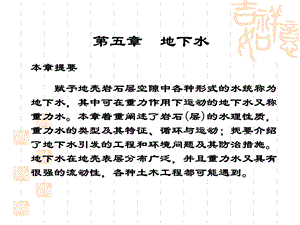 吉祥
如意
第五章 地下水
本章提要
赋予地壳岩石层空隙中各种形式的水统称为
地下水，其中可在重力作用下运动的地下水又称
重力水。本章着重阐述了岩石(层)的水理性质，
重力水的类型及其特征、循环与运动；扼要介绍
了地下水引发的工程和环境问题及其防治措施。
地下水在地壳表层分布广泛，并且重力水又具有
很强的流动性，各种土木工程都可能遇到。